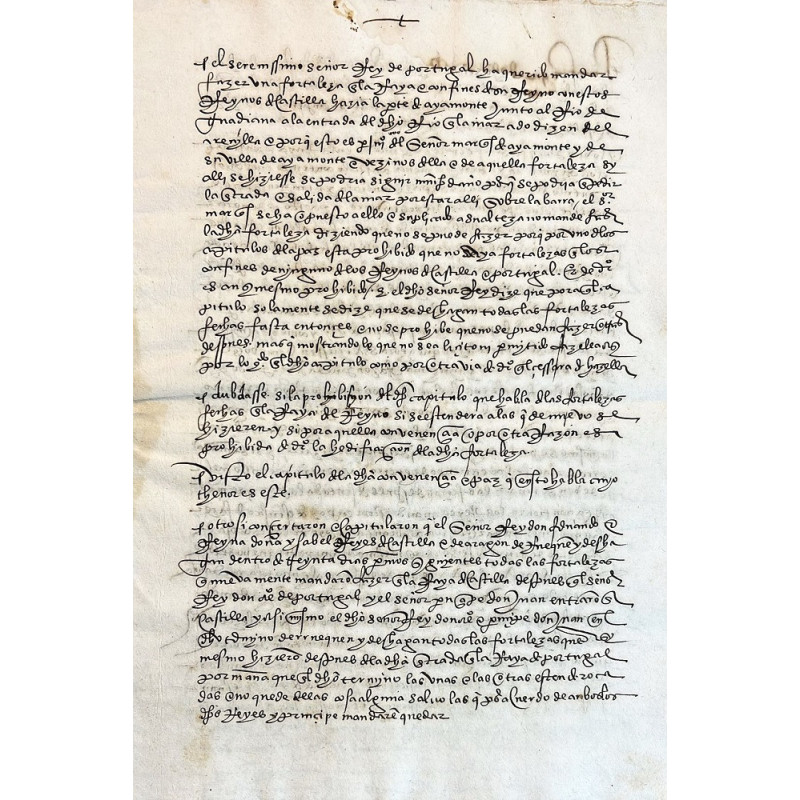 el serenissimo señor Rey de portugal ha querido mandar
fazer una fortaleza en la Raya e confines de su Reyno con estos
Reynos de Castilla hazia la pte de ayamonte junto al Rio de
guadiana a la entrada del dho Rio en la mar a do dizen del
arenilla e porq esto es del Señor marqs de ayamonte y de
su villa de ayamonte e vezinos della e de aquella fortaleza sy
alli se hiziesse se podria siguir daño pdq se podria
la entrada e salida de la mar por estar alli sobre la barra, el sor
marqs se ha opuesto a ello e suplicado a su alteza no mande fazer
la dha fortaleza diziendo que no se puede fazer porq por uno de los
capitulos de la paz esta prohibido que no aya fortalezas en los
confines de ninguno de los Reynos de Castilla e portugal
es ansy mesmo prohibido el dho señor Rey dize que por aql ca
pitulo solamente se dize que se deshagan todas las fortalezas
fechas fasta entonçes, e no se prohibe que no se puedan fazer otras
despues. mas q mostrandole que no sea liçito ni permitido fazellas
por lo del dho capitulo como por otra via de dro el cessara de hazella
dubdasse si la prohibiçion del dho capitulo que habla de las fortalezas
fechas en la Raya del Reyno si se estendera a las q de nuevo se
hizieren y si por aquella convenençia o por otra Razon es
prohibida de dro la hedificaçion de la dha fortaleza.
Visto el capitulo de la dha convenençia e paz q en esto habla cuyo
thenor es este.
otrosi concertaron e capitularon q el Señor Rey don fernando e
Reyna doña ysabel Reyes de Castilla e de aragon derruequen y desha
gan dentro de treynta dias primeros siguientes todas las fortalezas
que nuevamente mandaron fazer en la Raya de Castilla despues q el señor
Rey don alo de portugal, y el señor prinçipe don Juan entraron en
Castilla y asi mismo el dho señor Rey don alo e prinçipe don Juan en el
dho termino derruequen y deshagan todas las fortalezas que
mesmo hizieron despues de la dha entrada en la Raya de portugal
por manera que en el dho termino las unas e las otras esten derroca
das e no quede dellas cosa alguna salvo las q por acuerdo de anbos los
dhos Reyes y prinçipe mandarē quedar